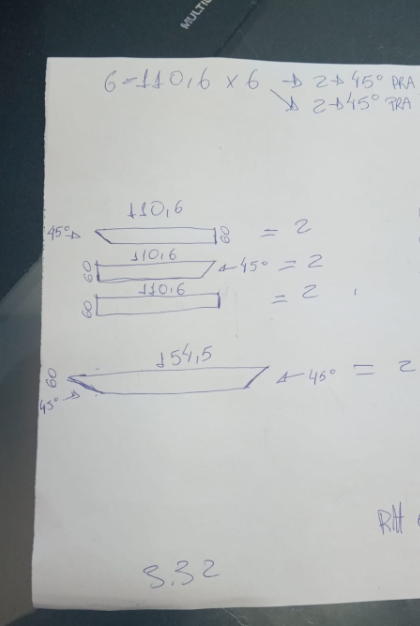 MULTI
6-110,6 x 6 → 2→45° PRA
↘ 2→45° PRA
110,6
45°→ 60 = 2
110,6
60 ←45° = 2
110,6
60 = 2
154,5
60 ←45° = 2
45°→
RH
3.32